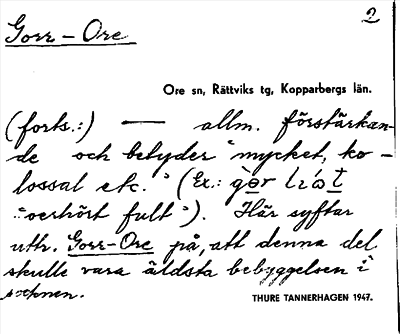 2
Gorr-Ore
Ore sn, Rättviks tg, Kopparbergs län.
(forts.:) — allm. förstärkan-
de och betyder "mycket, ko-
lossal etc." (Ex.:
"oerhört fult"). Här syftar
uttr. Gorr-Ore på, att denna del
skulle vara äldsta bebyggelsen i
socknen.
THURE TANNERHAGEN 1947.